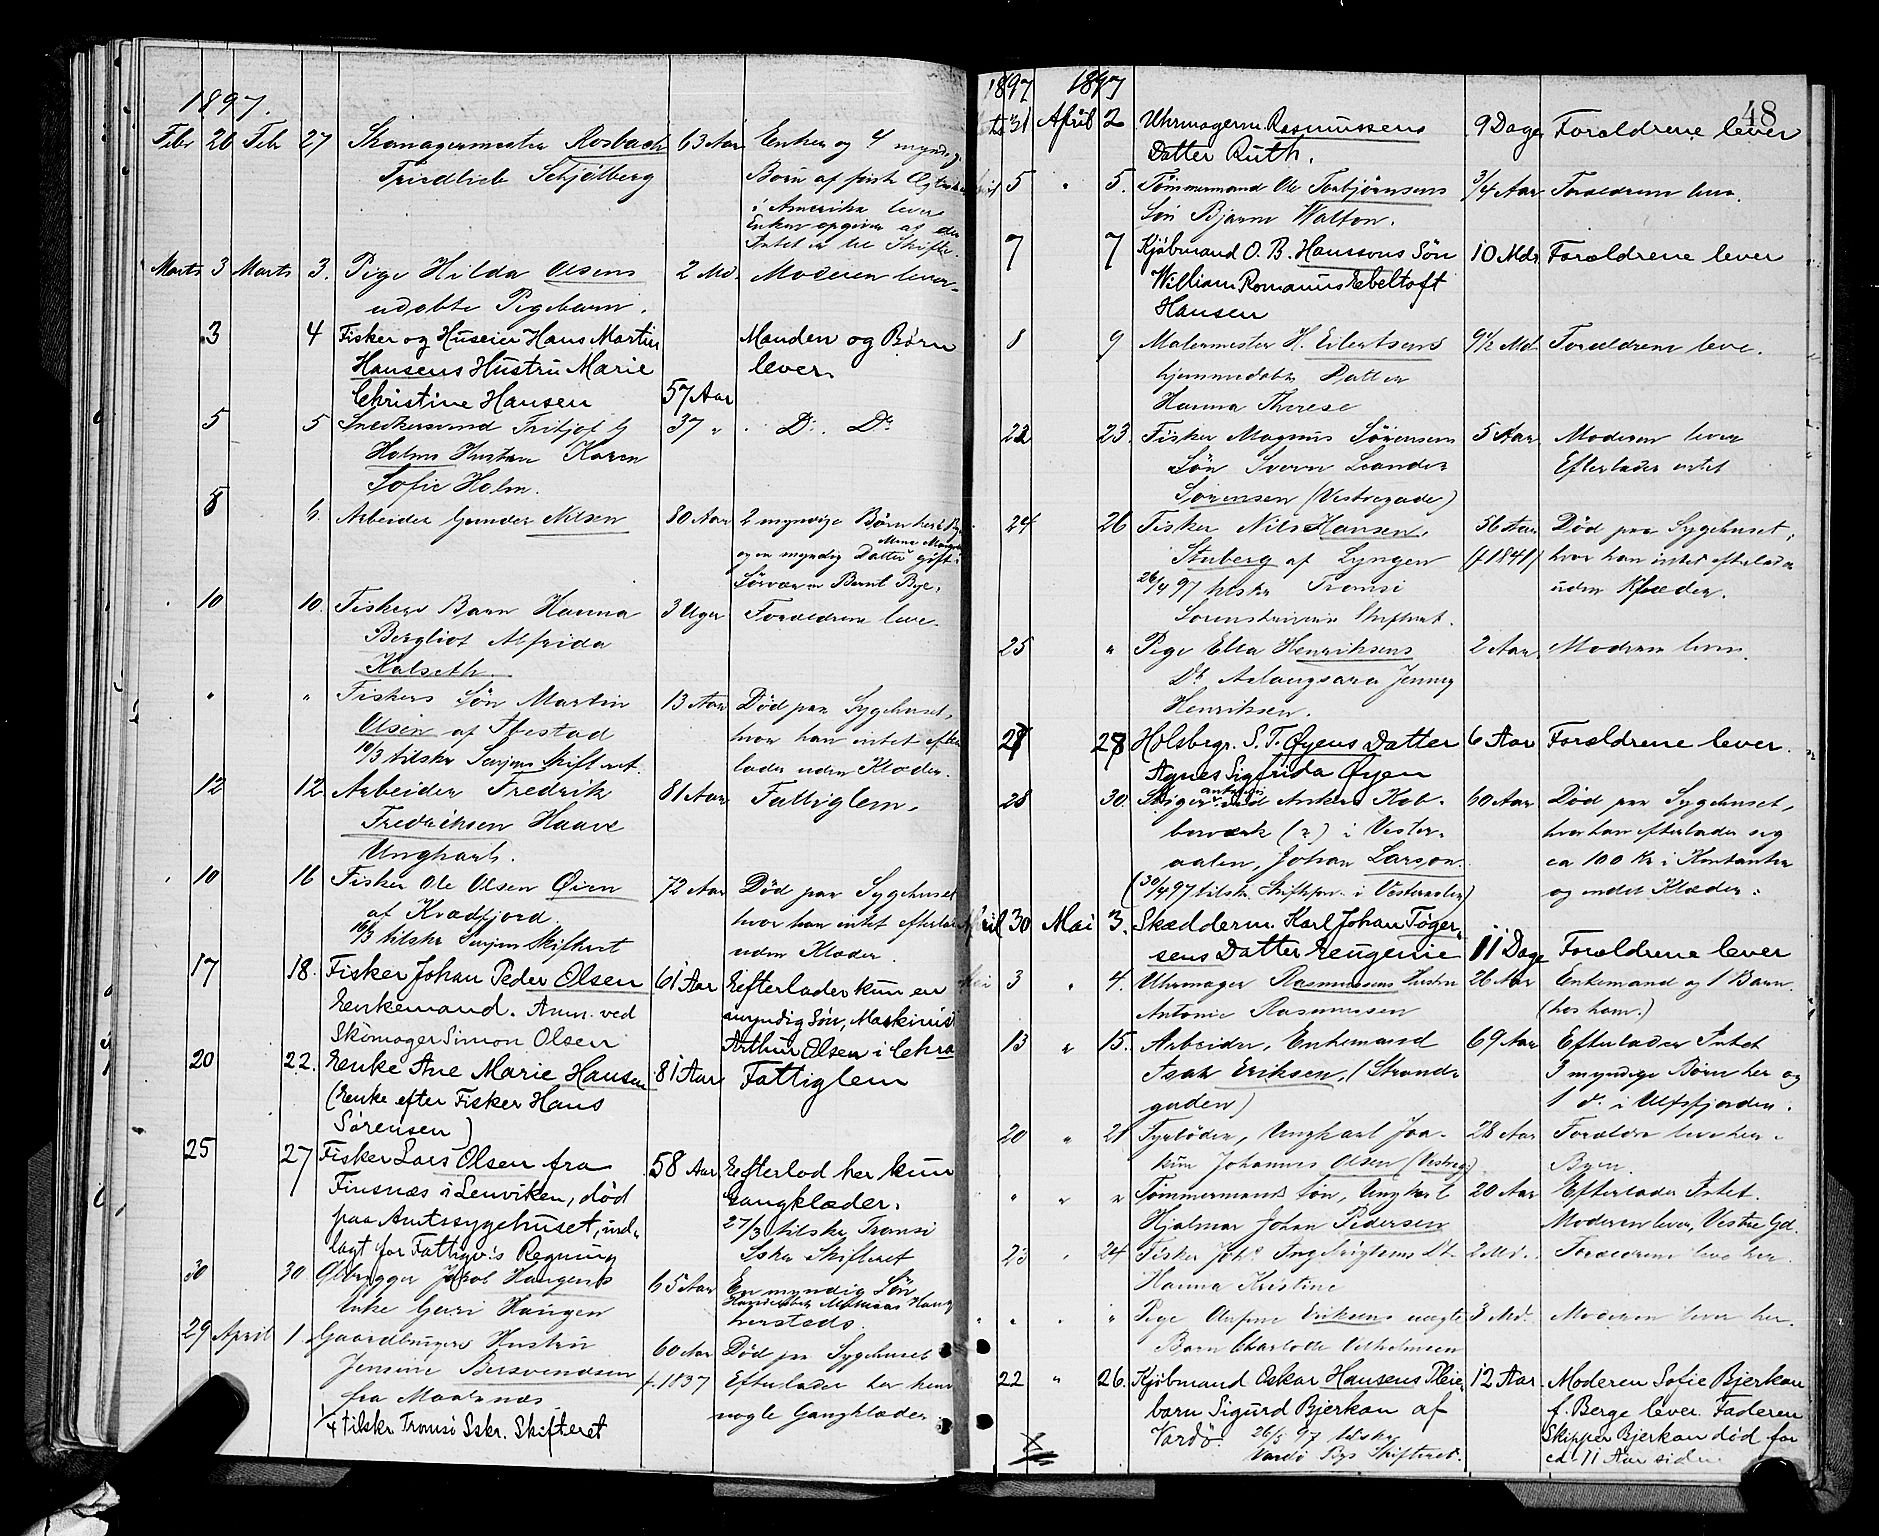 1897.
Febr 26 Febr 27 Skomagermester Rosbach 63 Aar Enken og 4 myndige
Friedlieb Schjølberg Børn af første Ægteskab
i Amerika lever
Enken opgiver at der
Intet er til Skifte.
Marts 3 Marts 3. Pige Hilda Olsens 2 Md. Moderen lever.
udøbte Pigebarn.
3 4 Fisker og Huseier Hans Martin Manden og Børn
Hansens Hustru Marie lever
Christine Hansen 57 Aar
5 5 Snedkersvend Fritjof G 37 " D: D:
Holms Hustru Karen
Sofie Holm.
5 6. Arbeider Gunder Nilsen 80 Aar 2 myndige Børn her i
og en myndig Datter gift i
Sørvær m Bernt Bye.
10 10. Fiskers Barn Hanna 3 Uger Forældrene leve.
Bergliot Alfrida
Kalseth.
" " Fiskers Søn Martin 13 Aar Død paa Sygehuset,
Olsen af Ibestad hvor han intet efter-
10/3 tilskr Senjens Skifteret. lader uden Klæder.
12 12. Arbeider Fredrik 81 Aar Fattiglem.
Fredriksen Haave
Ungkarl.
10 16 Fisker Ole Olsen Øien 72 Aar Død paa Sygehuset
af Kvædfjord. hvor han intet efterlader
16/3 tilskr Senjens Skifteret uden Klæder.
17 18. Fisker Johan Peder Olsen 61 Aar Efterlader kun en
Enkemand. Anm. ved myndig Søn, Maskinist
Skomager Simon Olsen Arthur Olsen i Chra
20 22. Enke Ane Marie Hansen 81 Aar Fattiglem
(Enke efter Fisker Hans
Sørensen)
25 27 Fisker Lars Olsen fra 58 Aar Efterlod her kun
Finsnæs i Lenviken, død Gangklæder.
paa Amtssygehuset, ind- 27/3 tilskr. Tromsø
lagt for Fattigv's Regning Sskr Skifteret
30 30 Ølbrygger Jakob Haugens 65 Aar En myndig Søn
Enke Guri Haugen Handelsbet Mathias Haug
hersteds.
29 April 1 Gaardbruger Hustru 60 Aar Død paa Sygehuset
Jensine Bersvendsen f. 1837 Efterlader her kun
fra Maalsnæs nogle Gangklæder
1/4 tilskr Tromsø Sskr. Skifteret
48
1897 1897
31 April 2 Uhrmagerm. Rasmussens 9 Dage Forældrene lever
Datter Ruth.
5 " 5. Tømmermand Ole Torbjørnsens 3/4 Aar Forældrene leve.
Søn Bjarne Walton.
7 7 Kjøbmand O. B. Hanssons Søn 10 Mdr Forældrene lever
William Romanus Ebeltoft
Hansen
8 9 Malermester H. Eilertsens 9 1/2 Md. Forældrene leve.
hjemmedøbte Datter
Hanna Therese
22 23. Fisker Magnus Sørensens 5 Aar Moderen lever
Søn Sverre Leander Efterlader intet
Sørensen (Vestregade)
24 26 Fisker Nils Hansen, 56 Aar Død paa Sygehuset,
Stuberg af Lyngen (f 1841) hvor han intet efterlader
26/4 97 tilskr Tromsø uden Klæder.
Sorenskriveri Skifteret.
25 " Pige Ella Henriksens 2 Aar Moderen lever.
Dtr Aslaugsara Jenny
Henriksen.
27 28 Holsbegr. S. T. Øyens Datter 6 Aar Forældrene lever.
Agnes Sigfrida Øyen
28 30. Stiger ved Anker Kob- 60 Aar Død paa Sygehuset,
berværk (?) i Vester- hvor han efterlader sig
aalen, Johan Larson. ca 100 Kr i Kontanter
(30/4 97 tilskr. Skiftefor. i Vesteraalen) og endel Klæder.
April 30 Mai 3. Skrædderm. Karl Johan Tøger-
sens Datter Eugenie 11 Dage Forældrene lever
Mai 3 " 4. Uhrmager Rasmussens Hustru 26 Aar Enkemand og 1 Barn.
Antonie Rasmussen (hos ham.)
13 " 15. Arbeider, Enkemand 69 Aar Efterlader Intet
Isak Eriksen, (Strand- 3 myndige Børn her og
gaden) 1 d. i Ulfsfjorden.
20 " 21 Fyrbøder, Ungkarl Joa- 28 Aar Forældre leve her i
kim Johannes Olsen (Vestreg) Byen.
" " " Tømmermands Søn, Ungkarl 20 Aar Efterlader Intet.
Hjalmar Johan Pedersen Moderen lever, Vestre Gd.
23 " 24 Fisker Joh Ing. Dt. 2 Md. Forældrene leve her.
Hanna Kristine
" " " Pige Eriksens uægte 3 Md. Moderen lever her.
Barn Charlotte Vilhelmsen
22 " 26. Kjøbmand Oskar Hansens Pleie- 12 Aar Moderen Sofie Bjerkan
barn Sigurd Bjerkan af f. Berge lever. Faderen
Vardø. 26/5 97 tilskr Skipper Bjerkan død for
Vardø Bys Skifteret. ca. 11 Aar siden